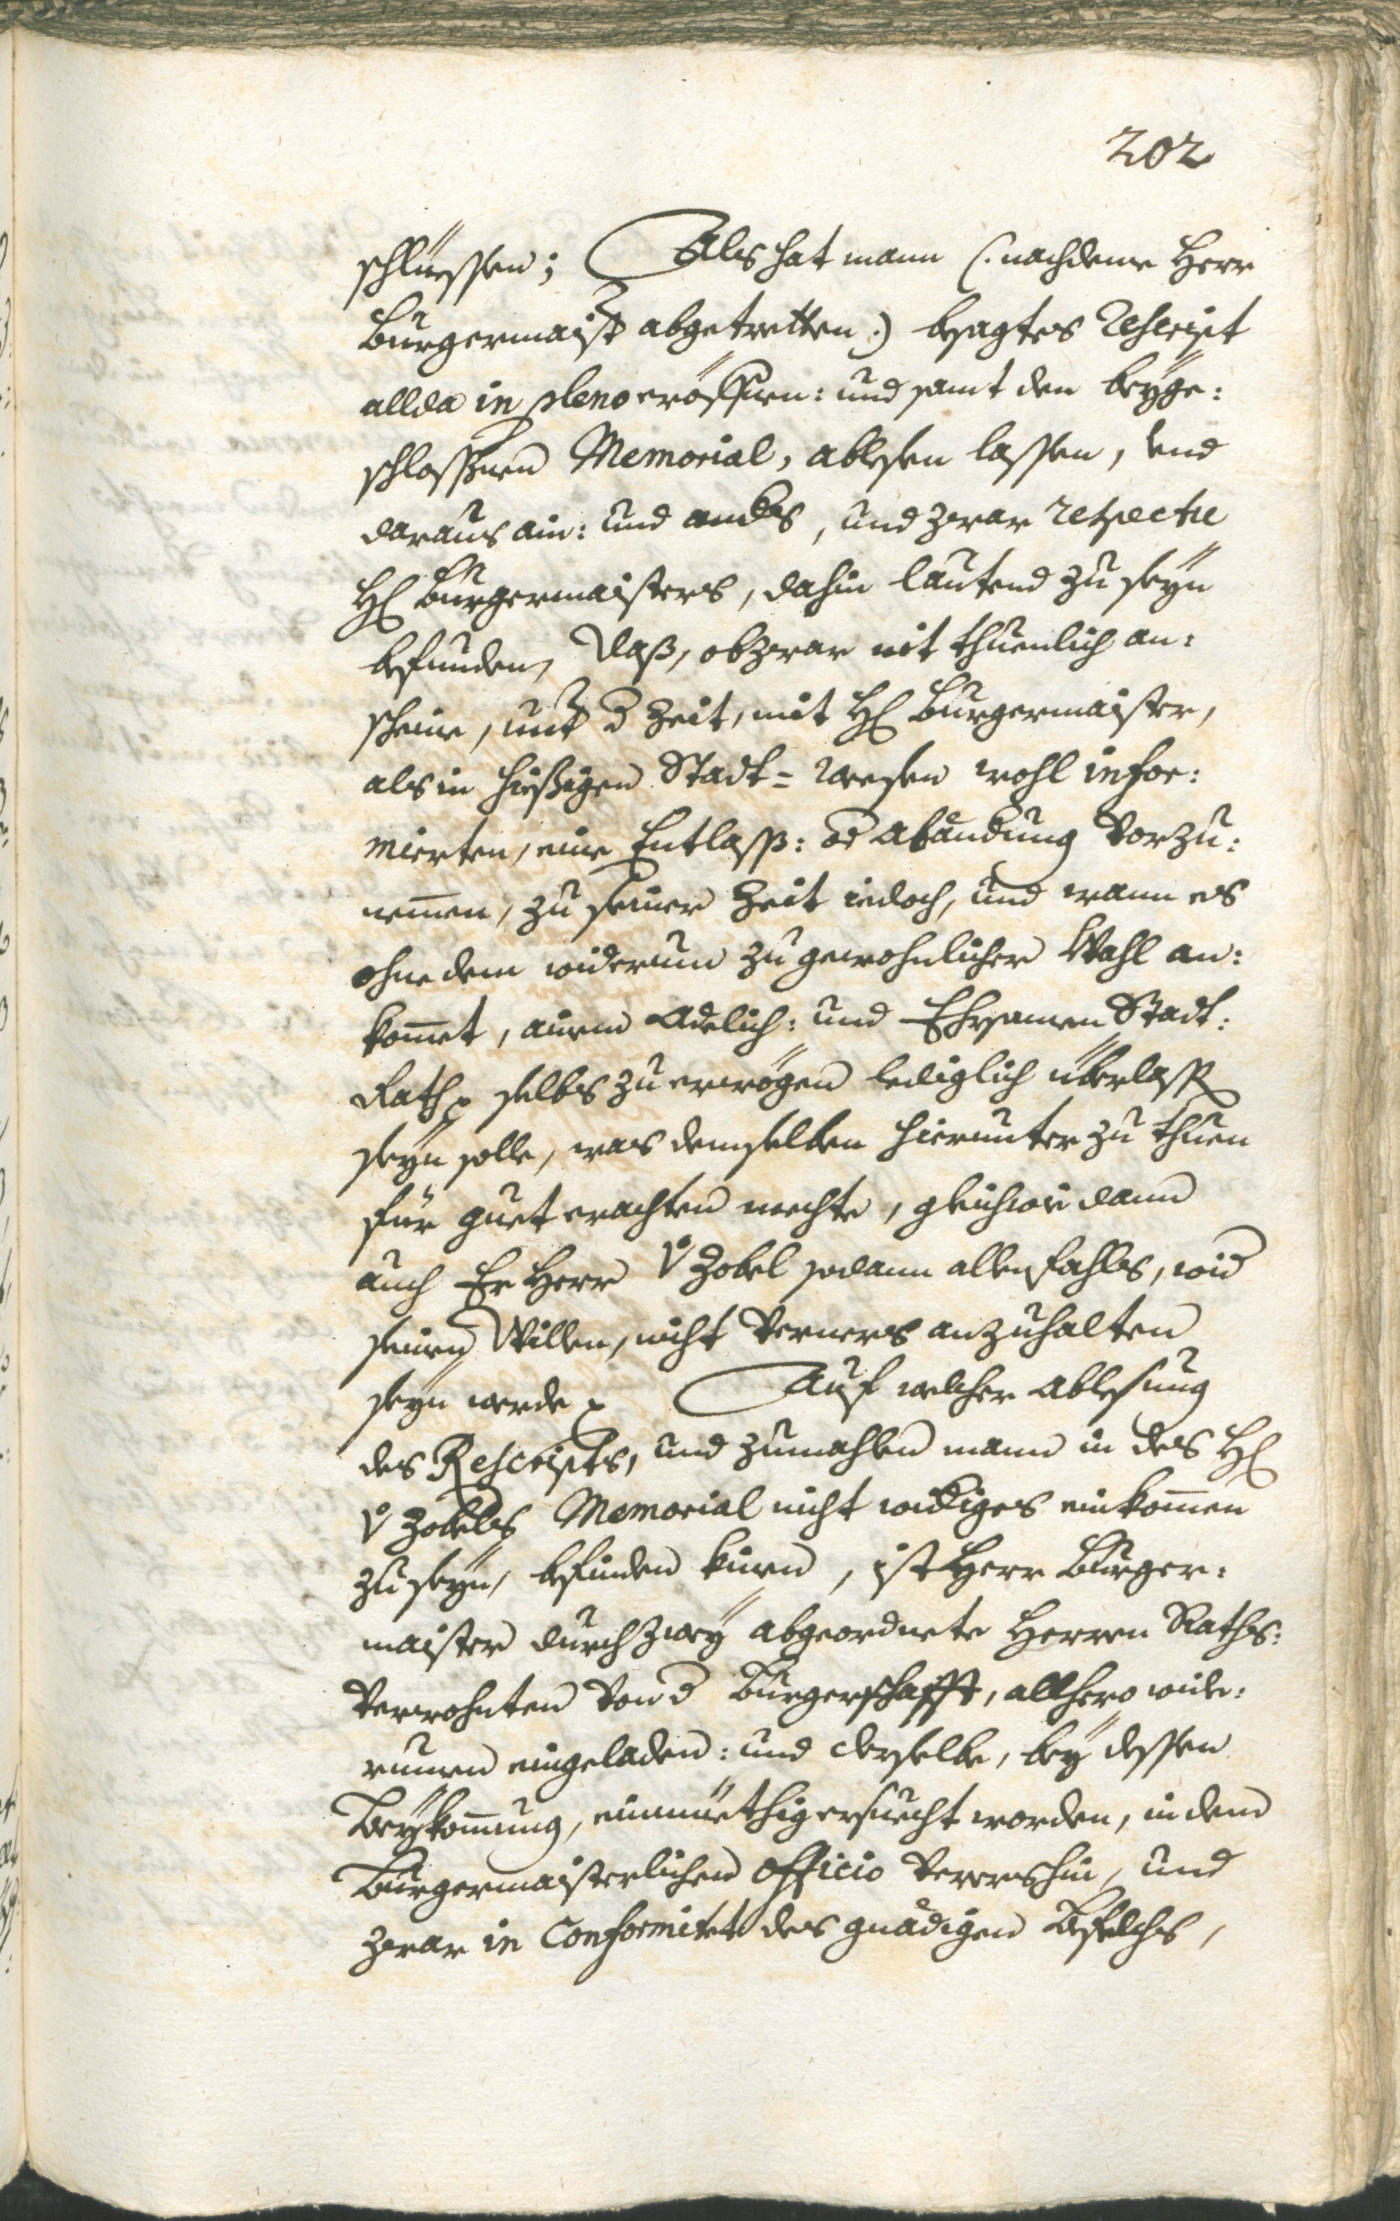 202
schlüessen; Als hat mann (: nachdeme Herr
Burgermaister abgetretten :) besagtes Rescript
allda in pleno eröffnen: und samt den beyge:
schlossnen Memorial, ablesen lassen, vnd
daraus ain: und anders, und zwar respective
H Burgermaisters, dahin lautend zu seyn
befunden, daß, obzwar nit thuenlich an:
scheine, unter d Zeit, mit H Burgermaister,
als in hießigen Stadt= Weesen wohl infor:
mierten, eine Entlass: od Abänderung vorzu:
nemen, zu seiner Zeit iedoch, und wann es
ohne dem widerum zu gewohnlicher Wahl an:
komet, ainem Adelich: und Ehrsamen Stadt:
Rath selbs zu erwögen lediglich überlassen
seyn solle, was demselben hierunter zu thuen
für guet erachten mechte, gleichwie dann
auch Er Herr v Zobel sodann allenfahls, wid
seinen Willen, nicht verners anzuhalten
seyn werde Auf welcher Ablesung
des Rescripts, und zumahlen mann in des H
v Zobels Memorial nicht widriges einkomen
zu seyn, befinden kinen, ist Herr Burger:
maister durch zwey abgeordnete Herren Raths:
Verwohnten von d Burgerschafft, allhero wide:
rumen eingeladen: und derselbe, bey dessen
Beykomung, einmüethig ersuecht worden, in dem
Burgermaisterlichen Officio verershin, und
zwar in Conformitet des gnädigen Befelchs,